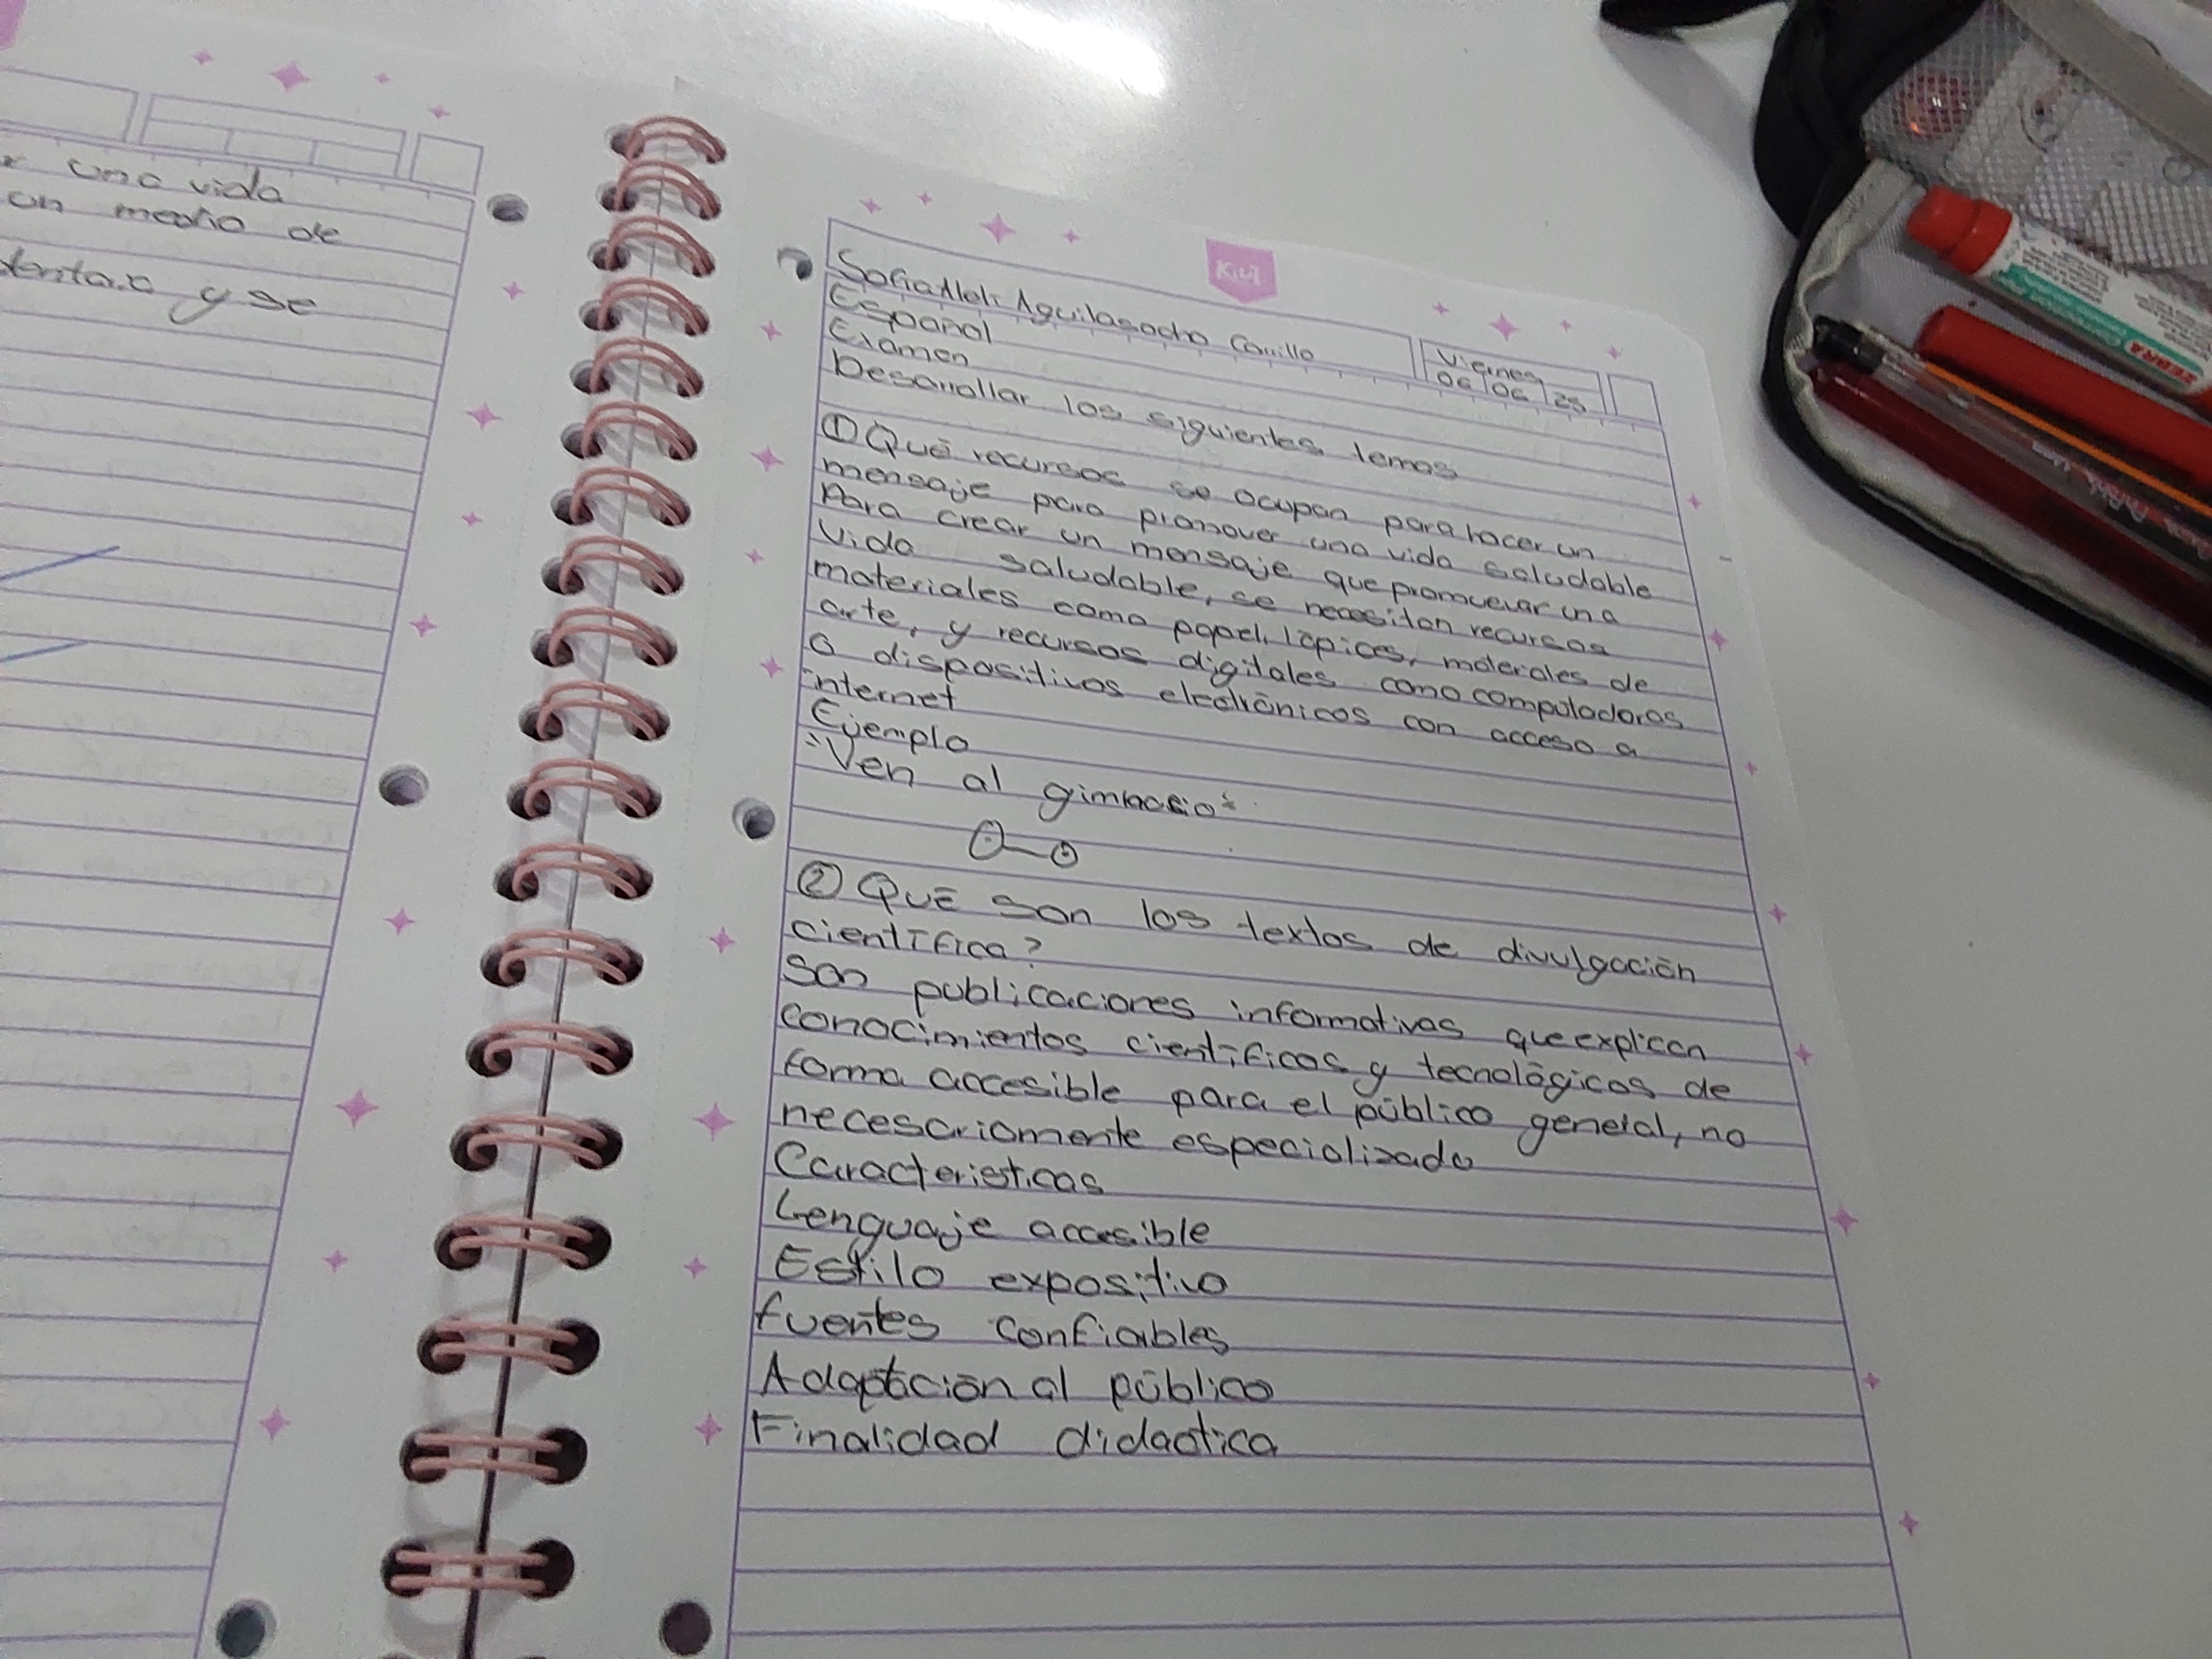 una vida
un medio de
y se
Kiut
Sofia Aleli Aguilasocho Carrillo
Viernes
06 06 25
Español
Examen
Desarrollar los siguientes temas
① Qué recursos se ocupan para hacer un
mensaje para promover una vida saludable
Para crear un mensaje que promuevar una
vida saludable, se necesitan recursos
materiales como papel, lápices, materiales de
arte, y recursos digitales como computadoras
O dispositivos electrónicos con acceso a
internet
Ejemplo
"Ven al gimnacio"
② Qué son los textos de divulgación
científica?
Son publicaciones informativas que explican
conocimientos científicos y tecnológicos de
forma accesible para el público general, no
necesariamente especializado
Caracteristicas
Lenguaje accesible
Estilo expositivo
fuentes confiables
Adaptación al público
Finalidad didactica
ZEBRA